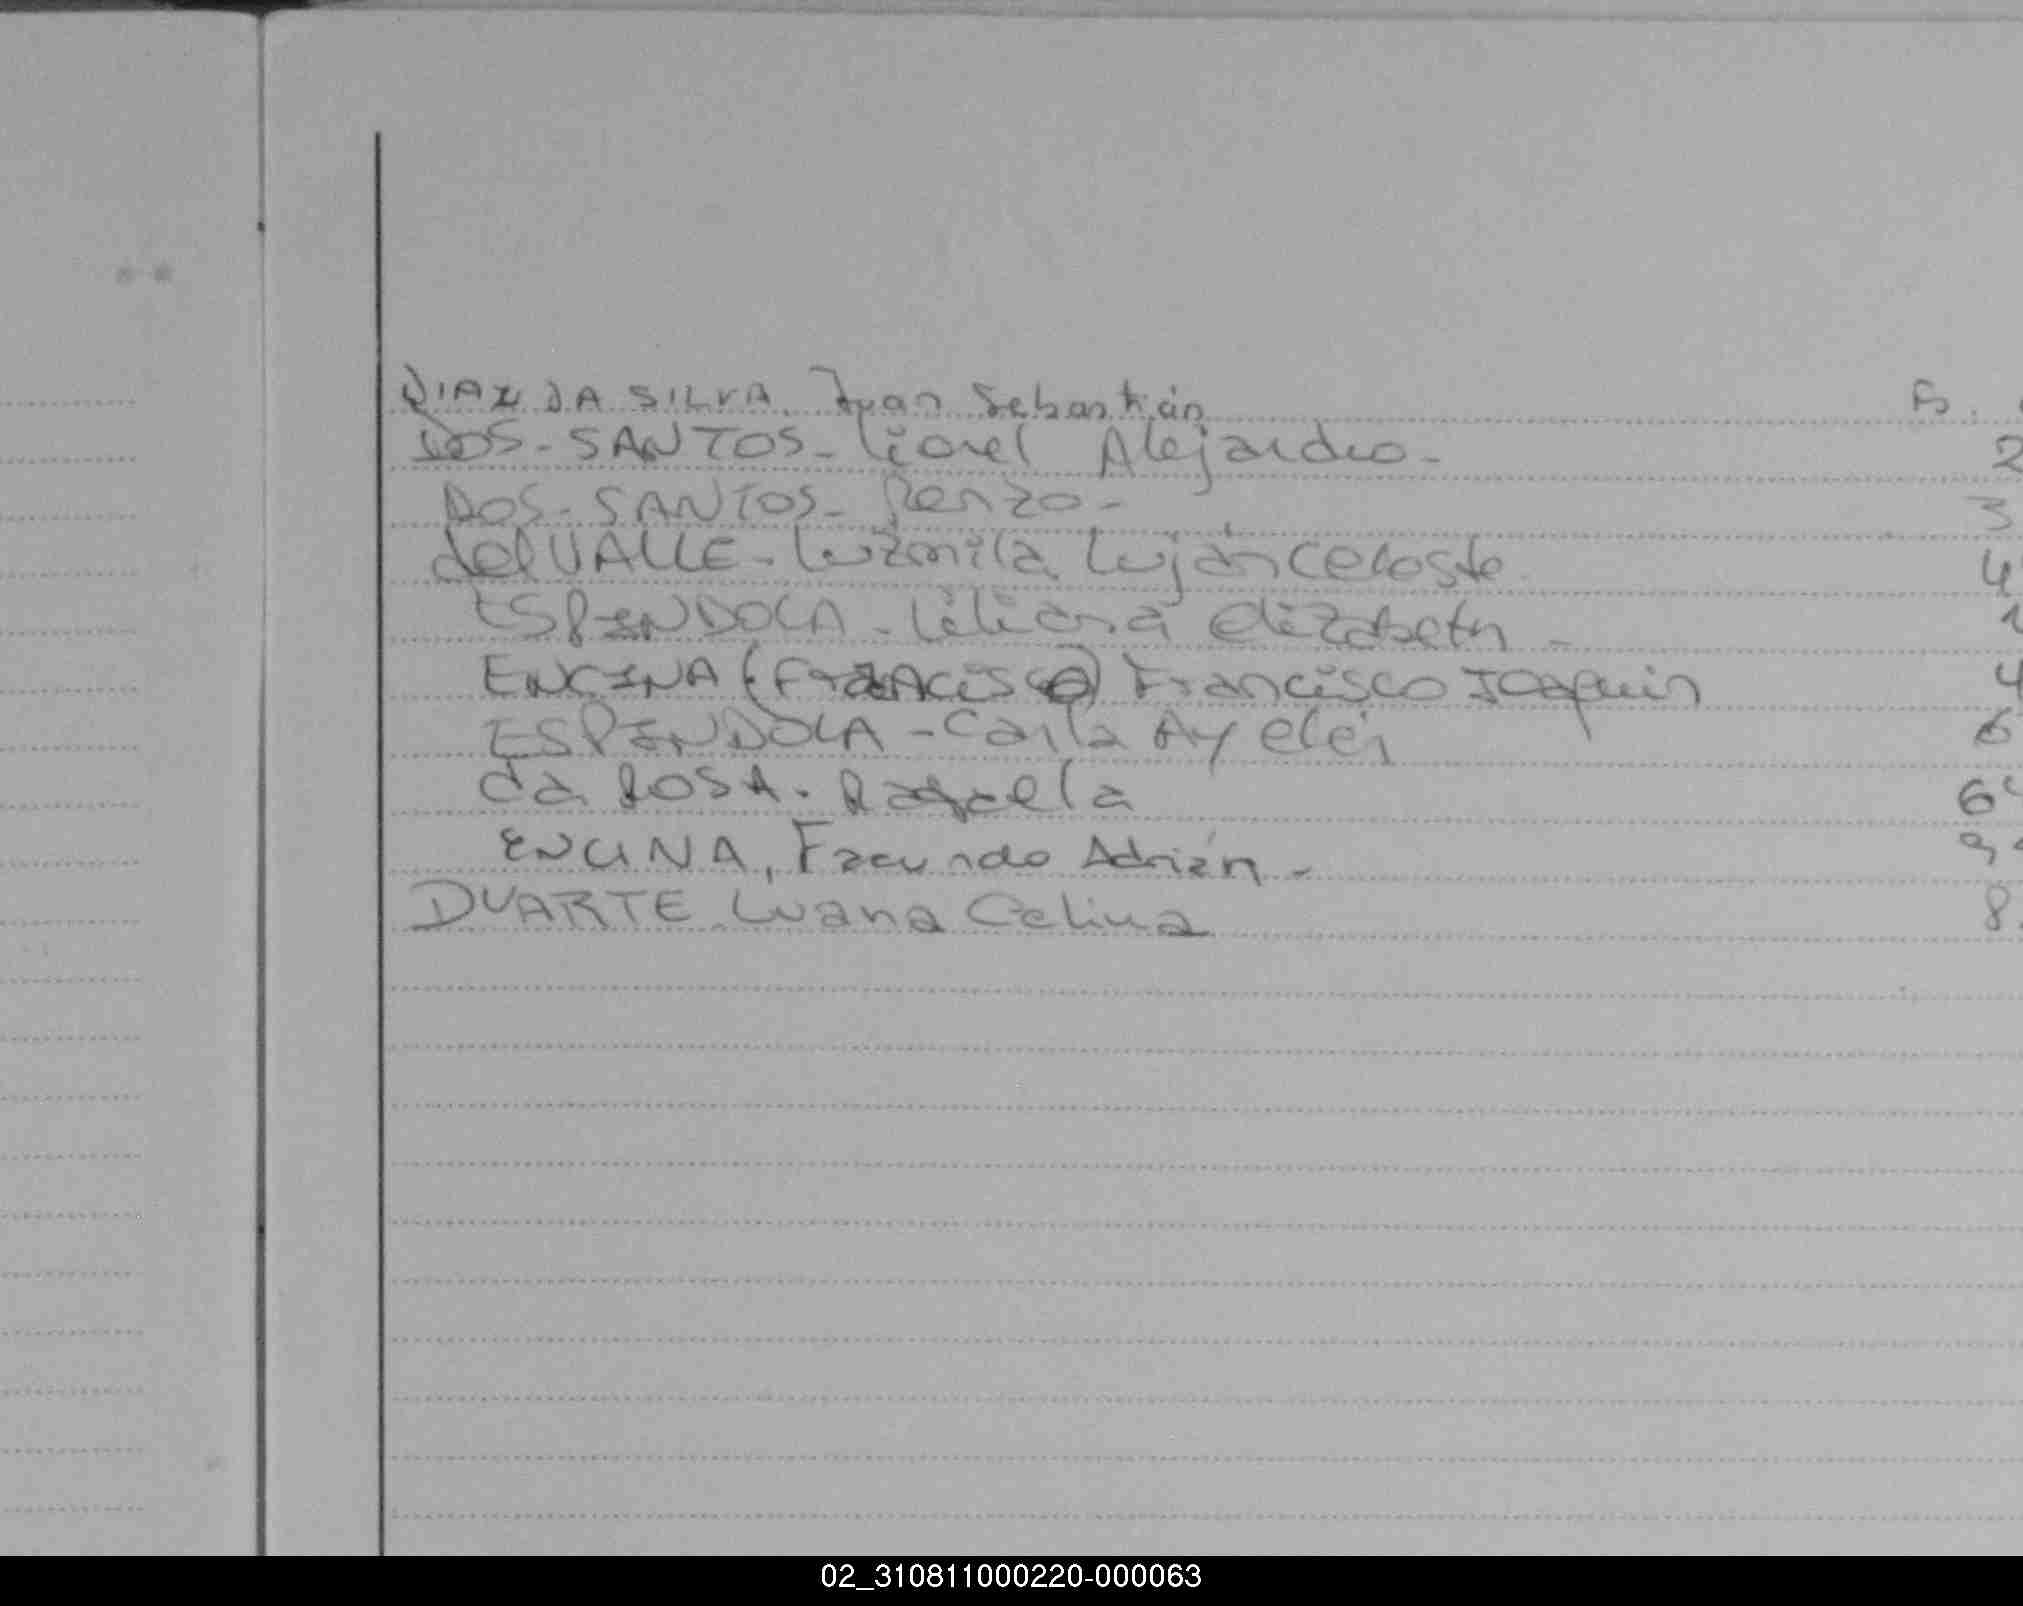 DIAZ DA SILVA, Juan Sebastián Fs.
DOS-SANTOS- Lionel Alejandro- 2
DOS-SANTOS- Renzo- 3
del VALLE- Luzmila Luján Celeste 4
ESPINDOLA- Liliana Elizabeth -
ENCINA (Francisco) Francisco Joaquin 4
ESPINDOLA - Carla Ayelén 6
da ROSA. Rafaella 6
ENCINA, Facundo Adrián - 9
DUARTE Luana Celina 8
02_310811000220-000063